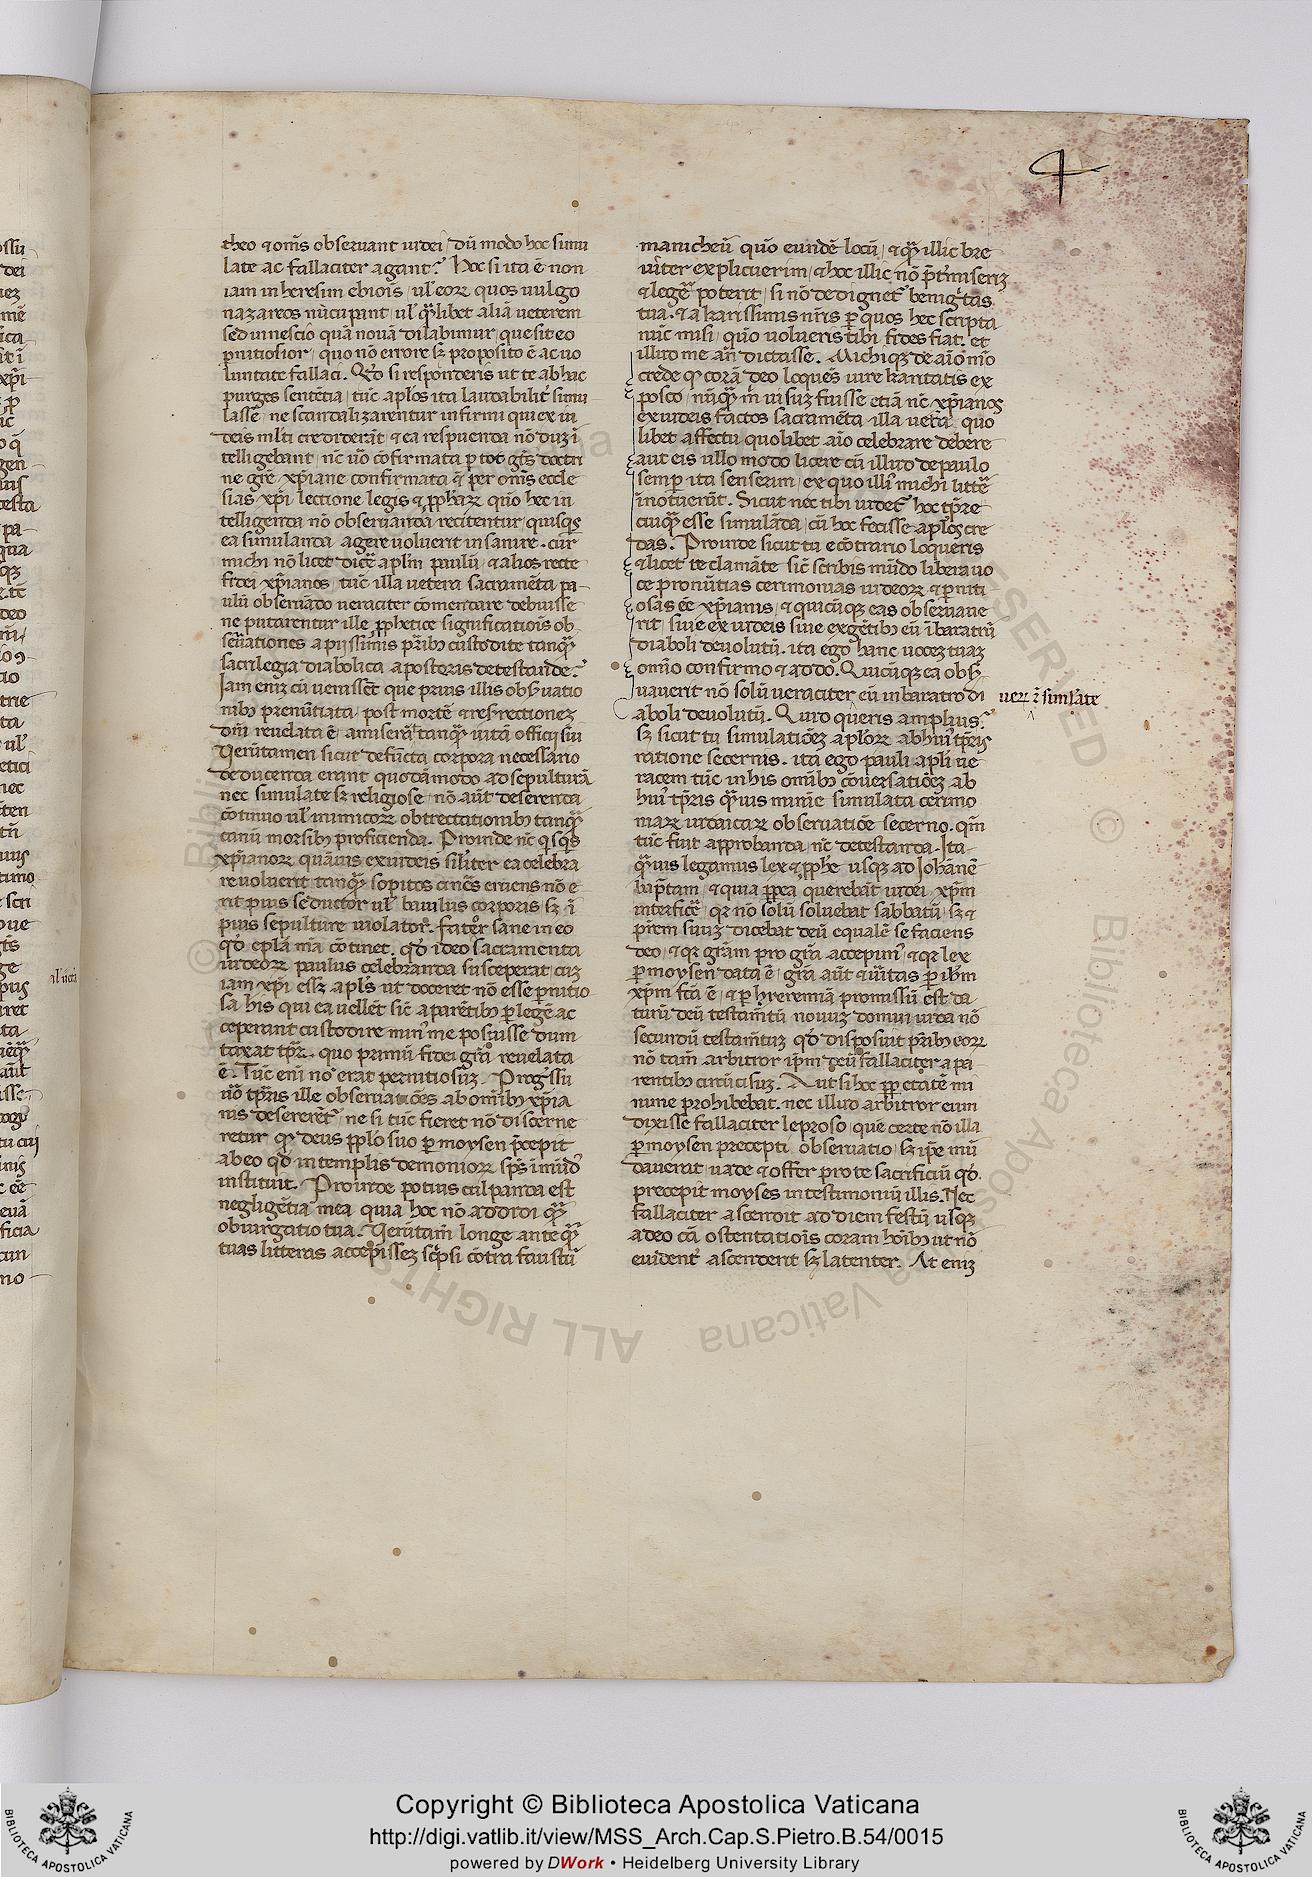 4
theo ⁊ om̅s observant iudei, du̅ modo hoc simu
late ac fallaciter agant? Hoc si ita e̅ non
iam in heresim ebiois̅, ul̕ eoꝝ quos vulgo
nazareos nu̅cupant, ul̕ q̅libet alia̅ veterem
sed in nescio qua̅ nova̅ dilabimur, que sit eo
p̲nitiosior, quo no̅ errore sꝫ proposito e̅ ac vo
luntate fallaci. Qd̕ si responderis ut te ab hac
purges sente̅tia, tu̅c apl̅os ita laudabilit̕ simu
lasse, ne scandalizarentur infirmi qui ex iu
deis ml̕ti crediderat̅, ⁊ ea respuenda no̅duꝫ i̅
telligebant, nc̅ vo̅ co̅firmata p̲ tot gn̅s doctri
ne gr̅e xp̅iane confirmata q̅ per om̅s eccle
sias xp̅i lectione legis ⁊ p̲p̲haꝝ quo̅ hec in
telligenda no̅ observanda recitentur, quisqꝫ
ea simulanda agere voluerit insanire. cur
michi no̅ licet dic̅e apl̅m paulu̅, ⁊ alios recte
fidei xp̅ianos, tu̅c illa vetera sacrame̅ta pa
ulu̅ observa̅do veraciter co̅mendare debuisse
ne putarentur ille p̲p̲hetice significatiois̅ ob
serv̅ationes a piissimis pr̅ibꝫ custodite tanq̅
sacrilegia diabolica a posteris detestande?
Iam eniꝫ cu̅ venisset̅ que prius illis obs̕vatio
nibꝫ prenu̅tiata, post morte̅ ⁊ res̕rectioneꝫ
dn̅i revelata e̅, amisera̅t tanq̅ vita̅ officij sui
Veru̅tamen sicut defu̅cta corpora necessario
deducenda erant quoda̅modo ad sepultura̅
nec simulate sꝫ religiose, no̅ aut̅ deserenda
co̅tinuo ul̕ inimicoꝝ obtrectationibꝫ tanq̅
canu̅ morsibꝫ proficienda. Proinde nc̅ q̅sqs̅
xp̅ianoꝝ qua̅vis ex iudeis sil̕iter ea celebra
re voluerit tanq̅ sopitos cine̅s eruens no̅ e
rit pius seductor ul̕ baiulus corporis, sꝫ i̅
pius sepulture violator. Fateor sane in eo
qd̕ epl̅a mi̅a co̅tinet, qd̕ ideo sacramenta
iudeoꝝ paulus celebranda susceperat cuꝫ
iam xp̅i esset apl̅s ut doceret no̅ esse p̲nitio
sa̅ his qui ea vellet̅ sic̅ a pare̅tibꝫ p̲ lege̅ ac
ceperant custodire min̕ me posuisse dum
taxat tp̅r, quo primu̅ fidei gr̅a revelata
e̅. Tu̅c eni̅ no̅ erat pernitiosuꝫ. Prog̅ssu
vo̅ tp̅ris ille observatio̅es ab om̅ibꝫ xp̅ia
nis desererent̅, ne si tu̅c fieret no̅ discerne
retur qd̕ deus pp̲lo suo p̲ moysen p̅cepit
ab eo qd̕ in templis demonioꝝ sps̅ inmu̅dꝰ
instituit. Proinde potius culpanda est
neglige̅tia mea quia hoc no̅ addidi q̅
obiurgatio tua. Veru̅tam̅ longe ante q̅
tuas litteras accepisseꝫ sc̅psi co̅tra faustu̅
manicheu̅ quo̅ eunde̅ locu̅, ⁊ q̅ illic bre
vi̅ter explicuerim, ⁊ hoc illic no̅ p̅t̅miseriꝫ
⁊ lege̅ poterit, si no̅ dedignet̕ benig̅tas
tua. ⁊ a karissimis nr̅is p̲ quos hec scripta
nu̅c misi, quo̅ volueris tibi fides fiat. et
illud me an̅ dictasse. Michiqꝫ de aı̅o mo̅
crede qd̕ cora̅ deo loque̅s iure karitatis ex
posco, nu̅q̅ m̅ visuꝫ fuisse etia̅ nc̅ xp̅ianos
ex iudeis factos sacrame̅ta illa vet̕a, quo
libet affectu quolibet aı̅o celebrare debere
aut eis ullo modo licere cu̅ illud de paulo
semp̲ ita senserim, ex quo illiꝰ michi litte̅
i̅notuerut̅. Sicut nec tibi videt̕ hoc tp̅re
cuiq̅ esse simula̅da, cu̅ hoc fecisse apl̅os cre
das. Proinde sicut tu e co̅trario loqueris
⁊ licet te clamante sic̅ scribis mu̅do libera vo
ce pronu̅tias cerimonias iudeoꝝ ⁊ p̲niti
osas ee̅ xp̅ianis, ⁊ quicu̅qꝫ eas observave
rit, sive ex iudeis sive ex ge̅tibꝫ eu̅ i̅ baratru̅
diaboli devolutu̅. ita ego hanc vocez tuaz
om̅io confirmo ⁊ addo. Quicu̅qꝫ ea obs̕
vaverit no̅ solu̅ veraciter eu̅ in baratro di
aboli devolutu̅. Quid queris amplius?
sꝫ sicut tu simulatio̅eꝫ apl̅oꝝ ab huiꝰ tp̅ris
ratione secernis, ita ego pauli apl̅i ve
racem tu̅c in his om̅ibꝫ co̅versatio̅eꝫ ab
huiꝰ tp̅ris q̅vis minie̅ simulata cerimo
niaꝝ iudaicaꝝ observatio̅e secerno. qm̅
tu̅c fuit approbanda, nc̅ detestanda. Ita
q̅vis legamus lex ⁊ p̲p̲he usqꝫ ad Joha̅ne̅
bap̅tam, ⁊ quia p̲p̲ea quereba̅t iudei xp̅m
interfice̅, qꝛ no̅ solu̅ solvebat sabbatu̅, sꝫ ⁊
pr̅em suuꝫ dicebat deu̅ equale̅ se faciens
deo, ⁊ qꝛ gr̅am pro gr̅a accepimꝰ, ⁊ qꝛ lex
p̲ moysen data e̅, gr̅a aut̅ ⁊ vi̅tas p̲ ih̅m
xp̅m fc̅a e̅, ⁊ p̲ hieremia̅ promissu̅ est da
turu̅ deu̅ testam̅tu̅ novuꝫ domui iuda no̅
secundu̅ testam̅tuꝫ qd̕ disposuit pr̅ibꝫ eoꝝ
no̅ tam̅ arbitror ip̅m deu̅ fallaciter a pa
rentibꝫ circu̅cisuꝫ. Aut si hoc p̲p̲ etate̅ mi
nime prohibebat, nec illud arbitror eum
dixisse fallaciter leproso, que̅ certe no̅ illa
p̲ moysen precepti observatio, sꝫ ip̅e mu̅
daverat, vade ⁊ offer pro te sacrificiu̅ qd̕
precepit moyses in testimoniu̅ illis. Nec
fallaciter ascendit ad diem festu̅ usqꝫ
adeo ca̅ ostentatiois̅ coram hoi̅bꝫ ut no̅
evident̕ ascenderit sꝫ latenter. At eniꝫ
veꝝ ⁊ simlate
Copyright © Biblioteca Apostolica Vaticana
http://digi.vatlib.it/view/MSS_Arch.Cap.S.Pietro.B.54/0015
powered by DWork • Heidelberg University Library